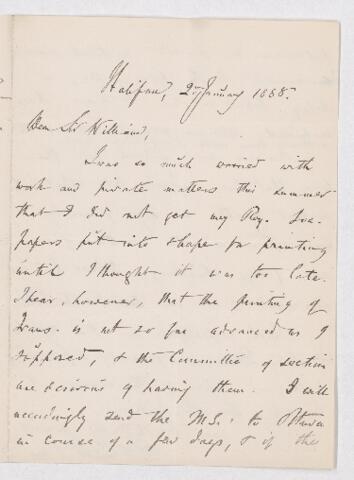 Halifax, 2nd January 1888.
Dear Sir William,
I was so much worried with
work and private matters this summer
that I did not get my Roy. Soc.
papers put into shape for printing
until I thought it was too late.
I hear, however, that the printing of
Trans. is not so far advanced as I
supposed, & the Committee of section
are desirous of having them. I will
accordingly send the MSS. to Ottawa
in course of a few days, & if the